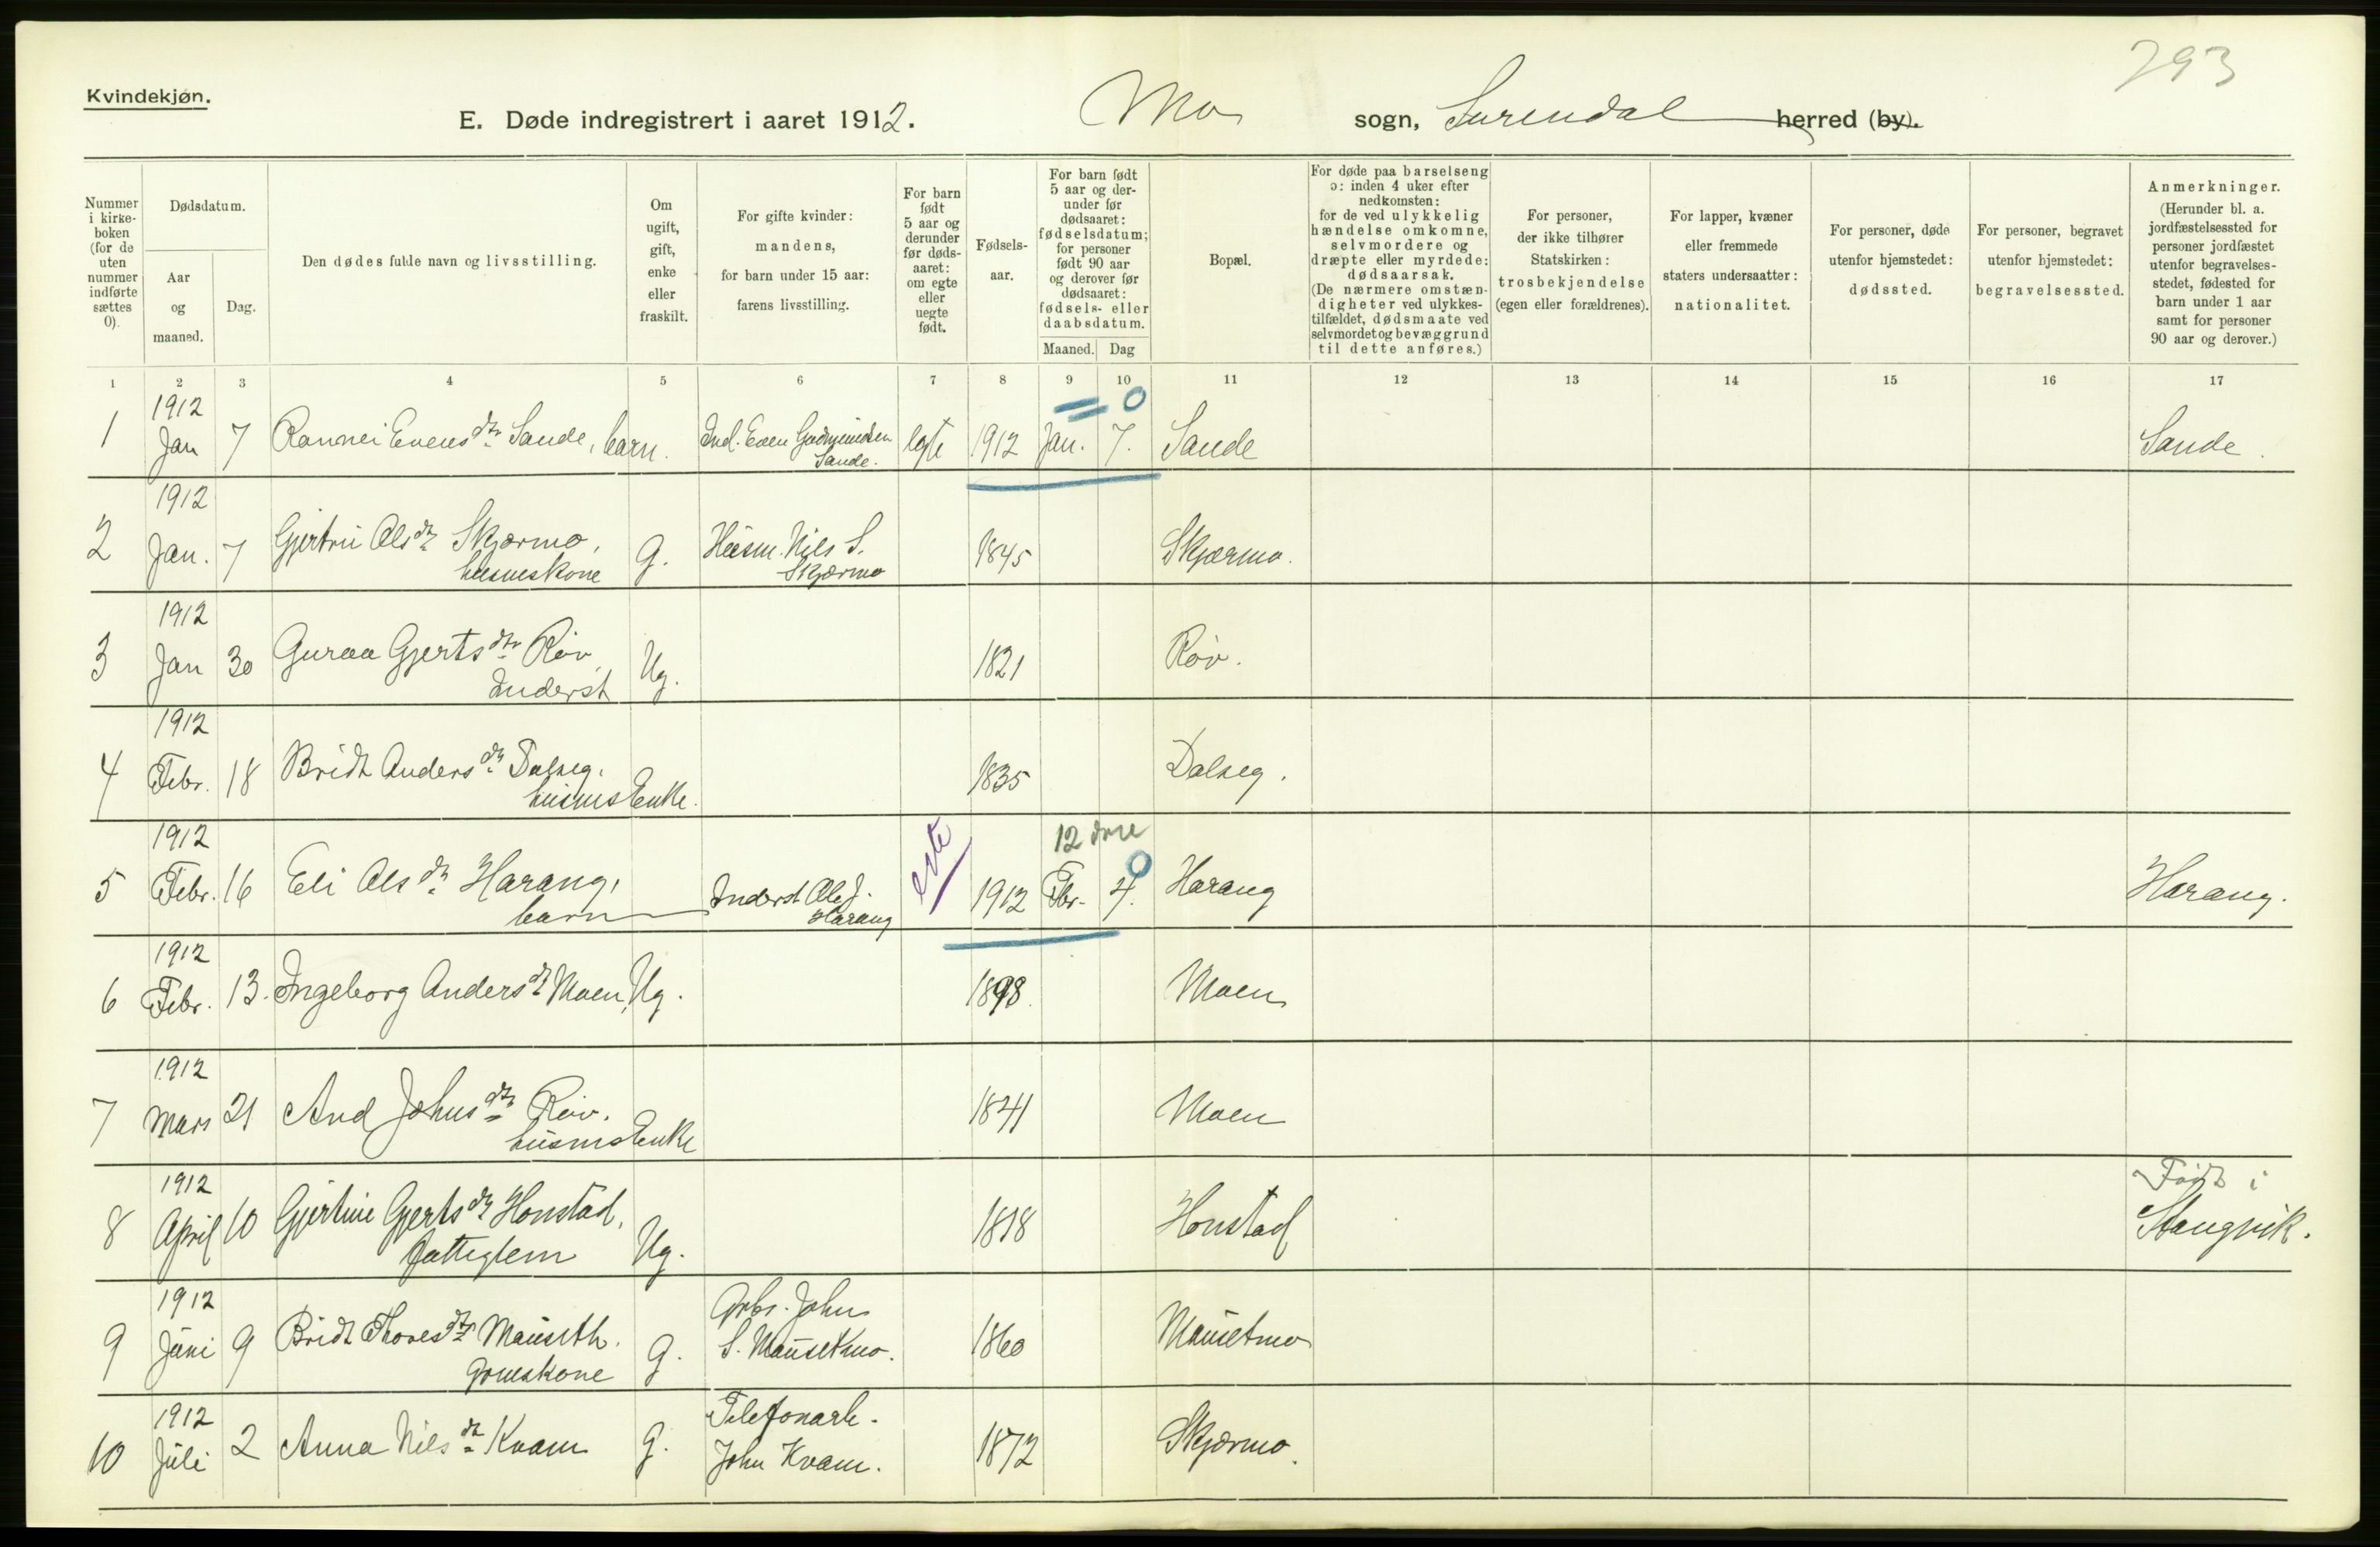 293
Kvindekjøn.
E. Døde indregistrert i aaret 1912. Mo sogn, Surendal herred (by).
Nummer i kirke-boken (for de uten nummer indførte sættes 0).
Dødsdatum.
Aar og maaned.
Dag.
Den dødes fulde navn og livsstilling.
Om ugift, gift, enke eller fraskilt.
For gifte kvinder: mandens, for barn under 15 aar: farens livsstilling.
For barn født 5 aar og derunder før døds-aaret: om egte eller uegte født.
Fødsels-aar.
For barn født 5 aar og der-under før dødsaaret: fødselsdatum; for personer født 90 aar og derover før dødsaaret: fødsels- eller daabsdatum.
Maaned. Dag
Bopæl.
For døde paa barselseng ɔ: inden 4 uker efter nedkomsten: for de ved ulykkelig hændelse omkomne, selvmordere og dræpte eller myrdede: dødsaarsak. (De nærmere omstæn-digheter ved ulykkes-tilfældet, dødsmaate ved selvmordet og bevæggrund til dette anføres.)
For personer, der ikke tilhører Statskirken: trosbekjendelse (egen eller forældrenes).
For lapper, kvæner eller fremmede staters undersaatter: nationalitet.
For personer, døde utenfor hjemstedet: dødssted.
For personer, begravet utenfor hjemstedet: begravelsessted.
Anmerkninger. (Herunder bl. a. jordfæstelsessted for personer jordfæstet utenfor begravelses-stedet, fødested for barn under 1 aar samt for personer 90 aar og derover.)
1 2 3 4 5 6 7 8 9 10 11 12 13 14 15 16 17
1912 0
1 Jan 7 Rannei Evens dtr Sande, barn. Ind. Even Gudmundsen Sande. egte 1912 Jan. 7. Sande Sande.
1912
2 Jan. 7 Gjertru Ols dtr Skjærmo, husmskone G. Husm. Nils S. Skjærmo 1845 Skjærmo.
1912
3 Jan 30 Guraa Gjerts dtr Røv, Inderst Ug. 1821 Røv.
1912
4 Febr. 18 Bridt Anders dtr Dalseg, husms Enke. 1835 Dalseg.
1912 12 dage
5 Febr. 16 Eli Ols dtr Harang, barn Inderst Ole J. Harang egte 1912 Fbr. 4. 0 Harang Harang.
1912
6 Febr. 13. Ingeborg Anders dtr Moen, Ug. 1898 Moen
1912
7 Mars 21 And Johns dtr Røv. husms Enke 1841 Moen
1912 Født i
8 April 10 Gjertine Gjerts dtr Honstad, Fattiglem Ug. 1818 Honstad Stangvik.
1912
9 Juni 9 Bridt Thores dtr Mauseth. G. Arbr. John S. Mausetmo. 1860 Mausetmo
1912
10 Juli 2 Anna Nils dtr Kvam G. Telefonarb. John Kvam. 1872 Skjærmo.